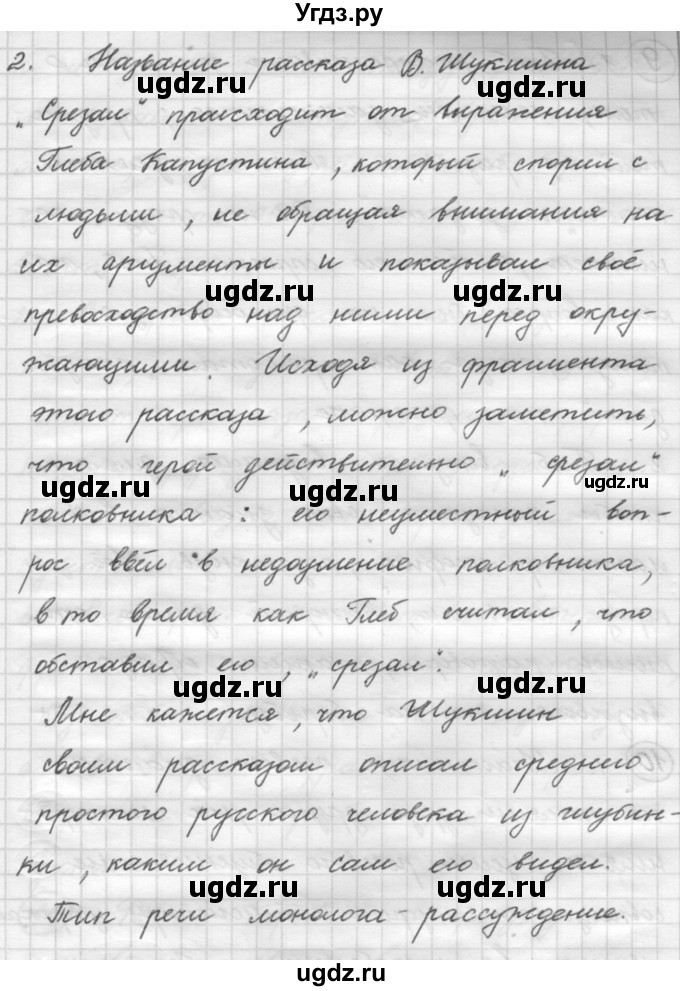 Угдз.ру
2. Название рассказа В. Шукшина
„Срезал" происходит от выражения
Глеба Капустина, который спорил с
людьми, не обращая внимания на
их аргументы и показывал своё
превосходство над ними перед окру-
жающими. Исходя из фрагмента
этого рассказа, можно заметить,
что герой действительно „срезал"
полковника: его неуместный воп-
рос ввёл в недоумение полковника,
в то время как Глеб считал, что
обставил его, „срезал".
Мне кажется, что Шукшин
своим рассказом описал среднего
простого русского человека из глубин-
ки, каким он сам его видел.
Тип речи монолога - рассуждение.
ugdz.ru
ugdz.ru
ugdz.ru
ugdz.ru
ugdz.ru
ugdz.ru
ugdz.ru
ugdz.ru
ugdz.ru
ugdz.ru
ugdz.ru
ugdz.ru
ugdz.ru
ugdz.ru